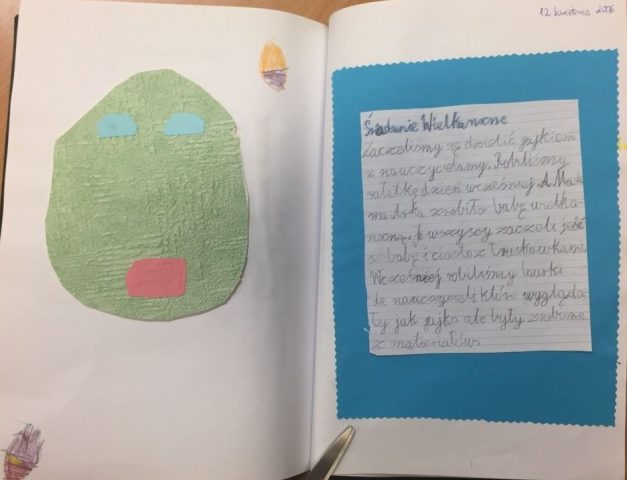 12 kwietnia 2006
Śniadanie Wielkanocne
Zaczeliśmy się dzielić jajkiem
z nauczycielamy. Robiliśmy
sałatkę dzień wcześniej. A Ma
ma Arka zrobiła babę wielka-
nocną. I wszyscy zaczeli jeść
babę i ciasto z truskawkami
Wcześniej robiliśmy laurki
dla nauczycieli które wygląda-
ły jak jajka ale były zrobione
z materiałów.